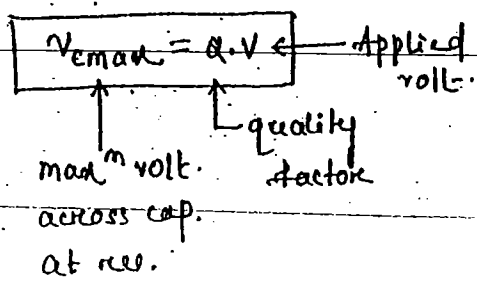 Vcmax = Q.V ← Applied
volt.
quality
factor
maxᵐ volt.
across cap.
at res.